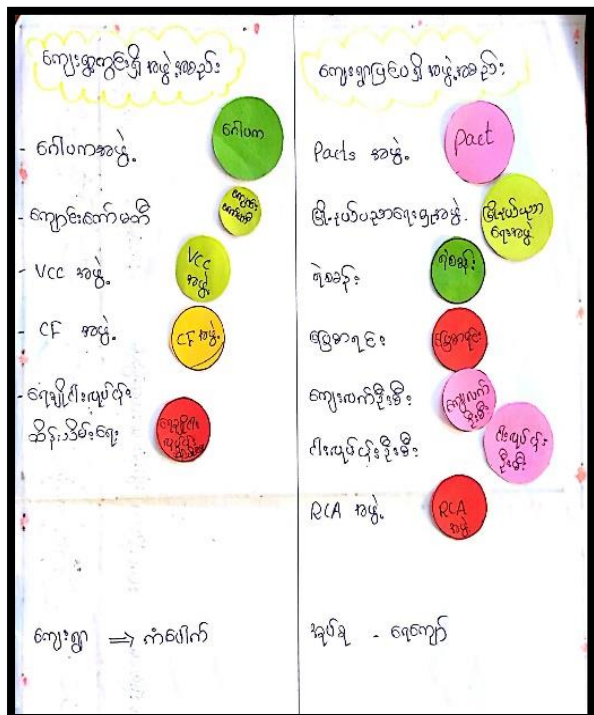 ကျေးရွာတွင်းရှိ အဖွဲ့အစည်း
- ဂေါပကအဖွဲ့
ဂေါပက
- ကျောင်းကော်မတီ
ကျောင်းကော်မတီ
- VCC အဖွဲ့
VCC
အဖွဲ့
- CF အဖွဲ့
CF အဖွဲ့
- ရေချိုငါးလုပ်ငန်း
ထိန်းသိမ်းရေး
ရေချိုငါး
လုပ်ငန်း
ကျေးရွာ ⇒ ကံပေါက်
ကျေးရွာပြင်ပရှိ အဖွဲ့အစည်း
Pacts အဖွဲ့
Pact
မြို့နယ်ပညာရေးမှူးအဖွဲ့
မြို့နယ်ပညာ
ရေးအဖွဲ့
ရဲစခန်း
ရဲစခန်း
မြေစာရင်း
မြေစာရင်း
ကျေးလက်ဦးစီး
ကျေးလက်
ဦးစီး
ငါးလုပ်ငန်းဦးစီး
ငါးလုပ်ငန်း
ဦးစီး
RCA အဖွဲ့
RCA
အဖွဲ့
အုပ်စု - ရေကျော်